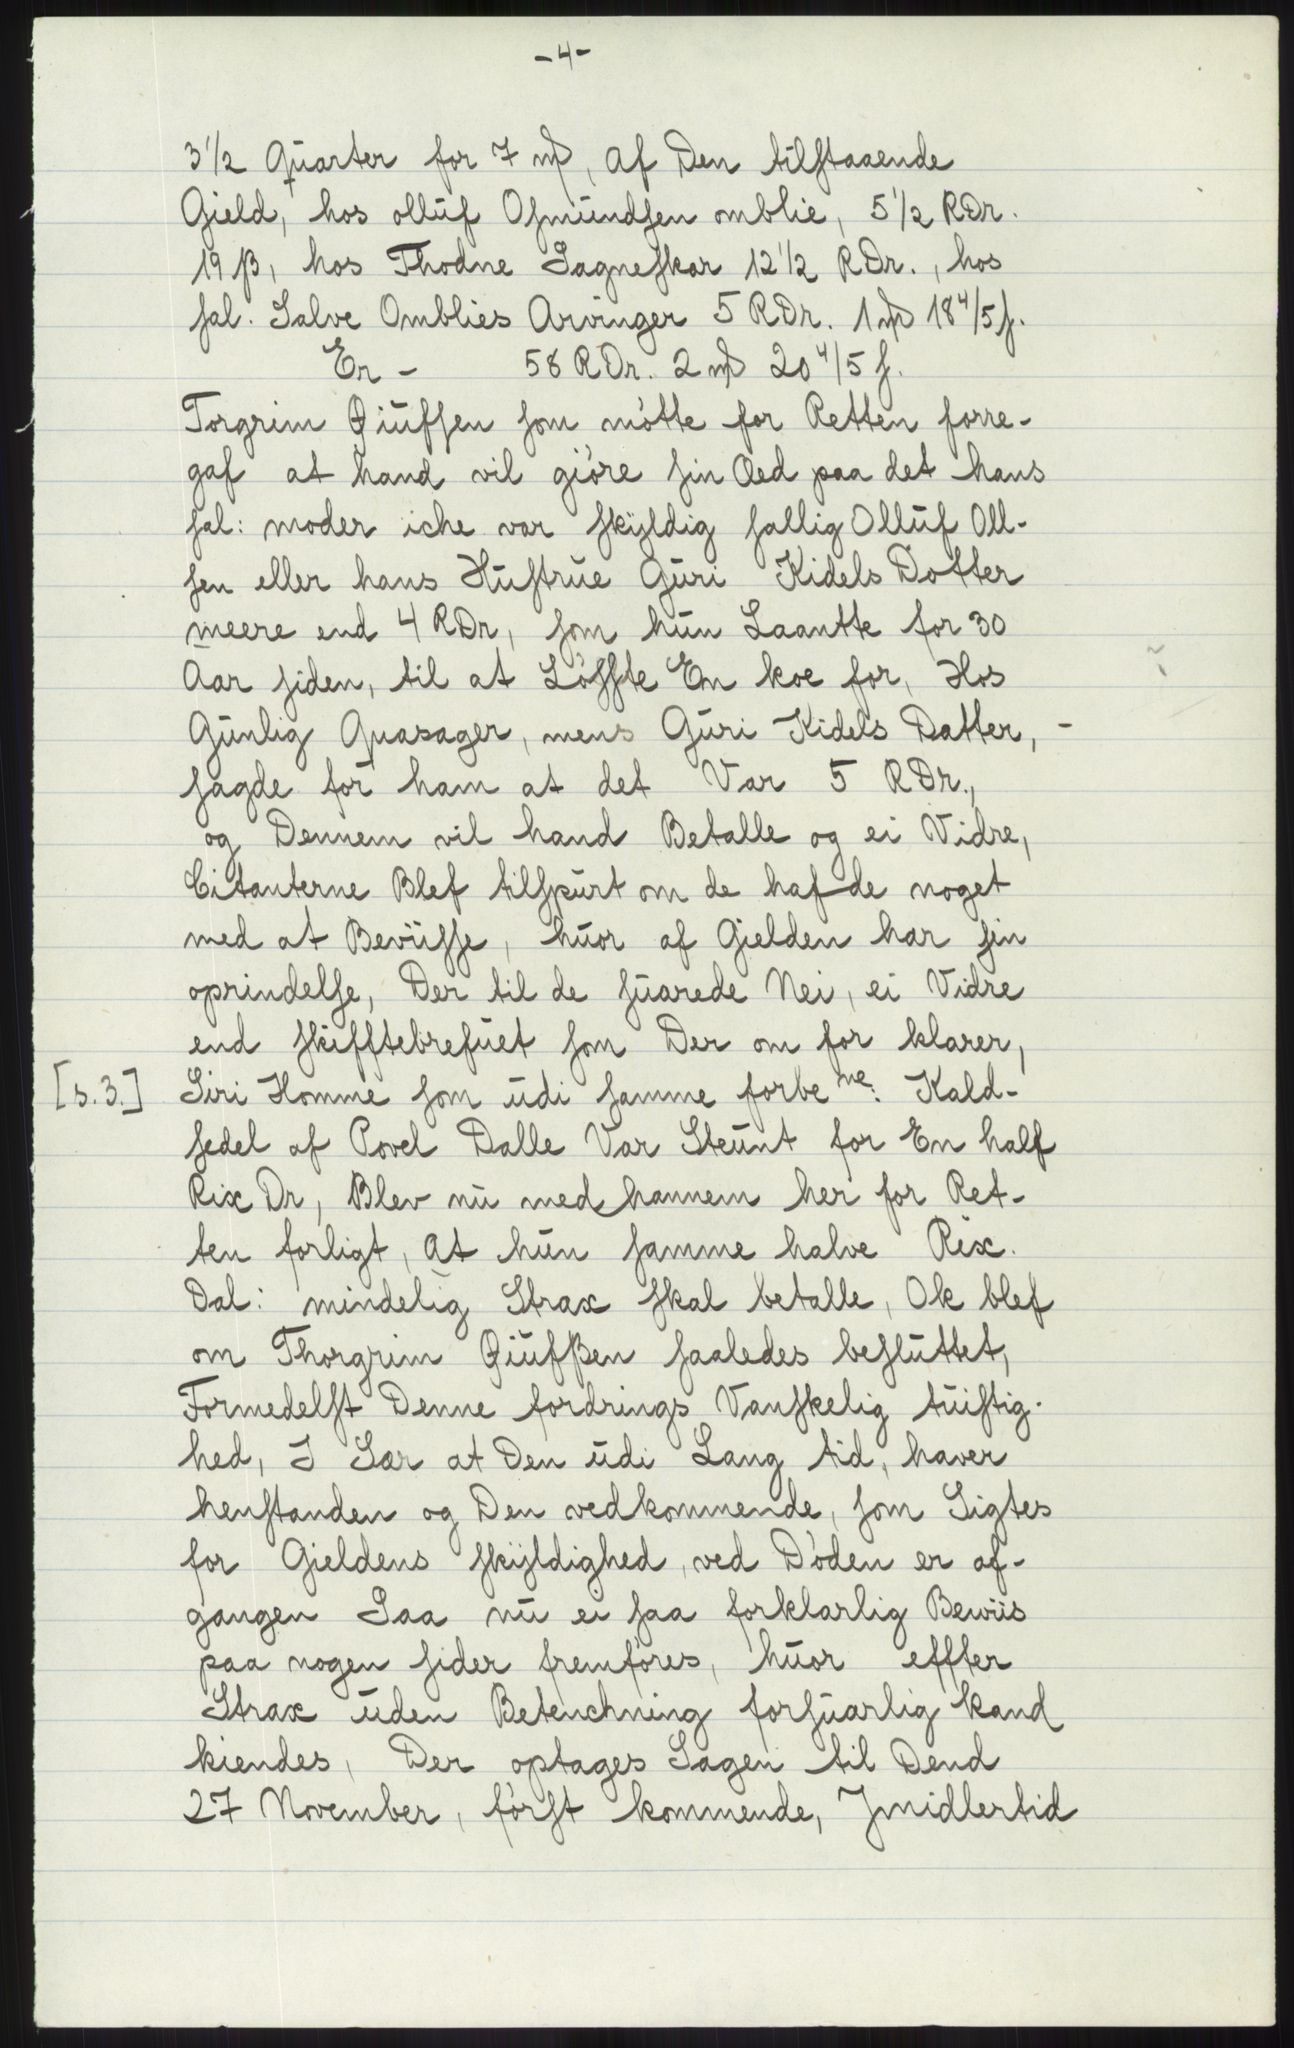 -4-
3½ Quarter for 7 mſ, af Den tilſtaaende
Gield, hos olluf Oſmundſen omblie, 5½ RDr.
19 β, hos Thodne Sagneſkar 12½ RDr., hos
ſal. Salve Omblies Arvinger 5 RDr. 1 mſ 18 4/5 ſ.
Er - 58 RDr. 2 mſ 20 4/5 ſ.
Torgrim Qiufſen ſom mötte for Retten forre-
gaf at hand vil giöre ſin Aed paa det hans
ſal: moder iche var ſkÿldig ſallig Olluf Oll-
ſen eller hans Huſtrue Guri Kidels Dotter
meere end 4 RDr, ſom hun Laantte for 30
Aar ſiden, til at Löffte En koe for, Hos
Gunlig Quasager, mens Guri Kidels Datter, -
ſagde for ham at det Var 5 RDr.,
og Dennem vil hand Betalle og ei Vidre,
Citanterne Blef tilſpurt om de hafde noget
med at Beviiſſe, huor af Gielden har ſin
oprindelſe, Der til de ſuarede Nei, ei Vidre
end ſkifftebrefuet ſom Der om for klarer,
[s. 3.] Siri Homme ſom udi ſamme forbe ne: Kald-
ſedel af Povel Dalle Var Steunt for En half
Rix Dr, Blev nu med hannem her for Ret-
ten forligt, at hun ſamme halve Rix.
Dal: mindelig Strax ſkal betalle, Ok blef
om Thorgrim Qiufβen ſaaledes beſluttet,
Formedelſt Denne fordrings Vanſkelig tuiſtig-
hed, I Sær at Den udi Lang tid, haver
henſtanden og Den vedkommende, ſom Sigtes
for Gieldens ſkÿldighed, ved Döden er af-
gangen Saa nu ei ſaa forklarlig Bewiis
paa nogen ſider fremföres, huor effter
Strax uden Betenchning forſuarlig kand
kiendes, Der optages Sagen til Dend
27 November, förſt kommende, Jmidlertid